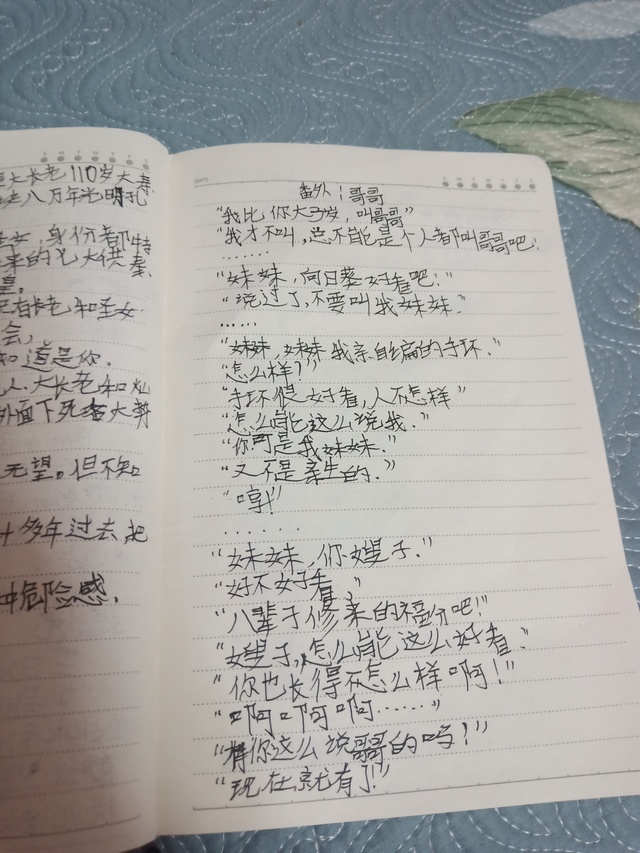 大长老110岁大寿
八万年光明孔
圣女，身份都特
来的七大供奉
皇。
长老和圣女
会，
知道是你.
人.大长老和
外面下死牢大
无望。但不知
十多年过去,把
中危险感.
DATE
番外1哥哥
“我比你大3岁，叫哥哥”
“我才不叫，总不能是个人都叫哥哥吧.
……
“妹妹，向日葵好看吧！”
“说过了，不要叫我妹妹.”
……
“妹妹，妹妹我亲自编的手环.
“怎么样？”
“手环很好看，人不怎样”
“怎么能这么说我.”
“你可是我妹妹.”
“又不是亲生的.”
“哼！”
……
“妹妹，你嫂子.”
“好不好看”
“八辈子修来的福分吧！”
“嫂子，怎么能这么好看.”
“你也长得不怎么样啊！”
“啊啊啊……”
“有你这么说哥哥的吗？”
“现在就有了！”